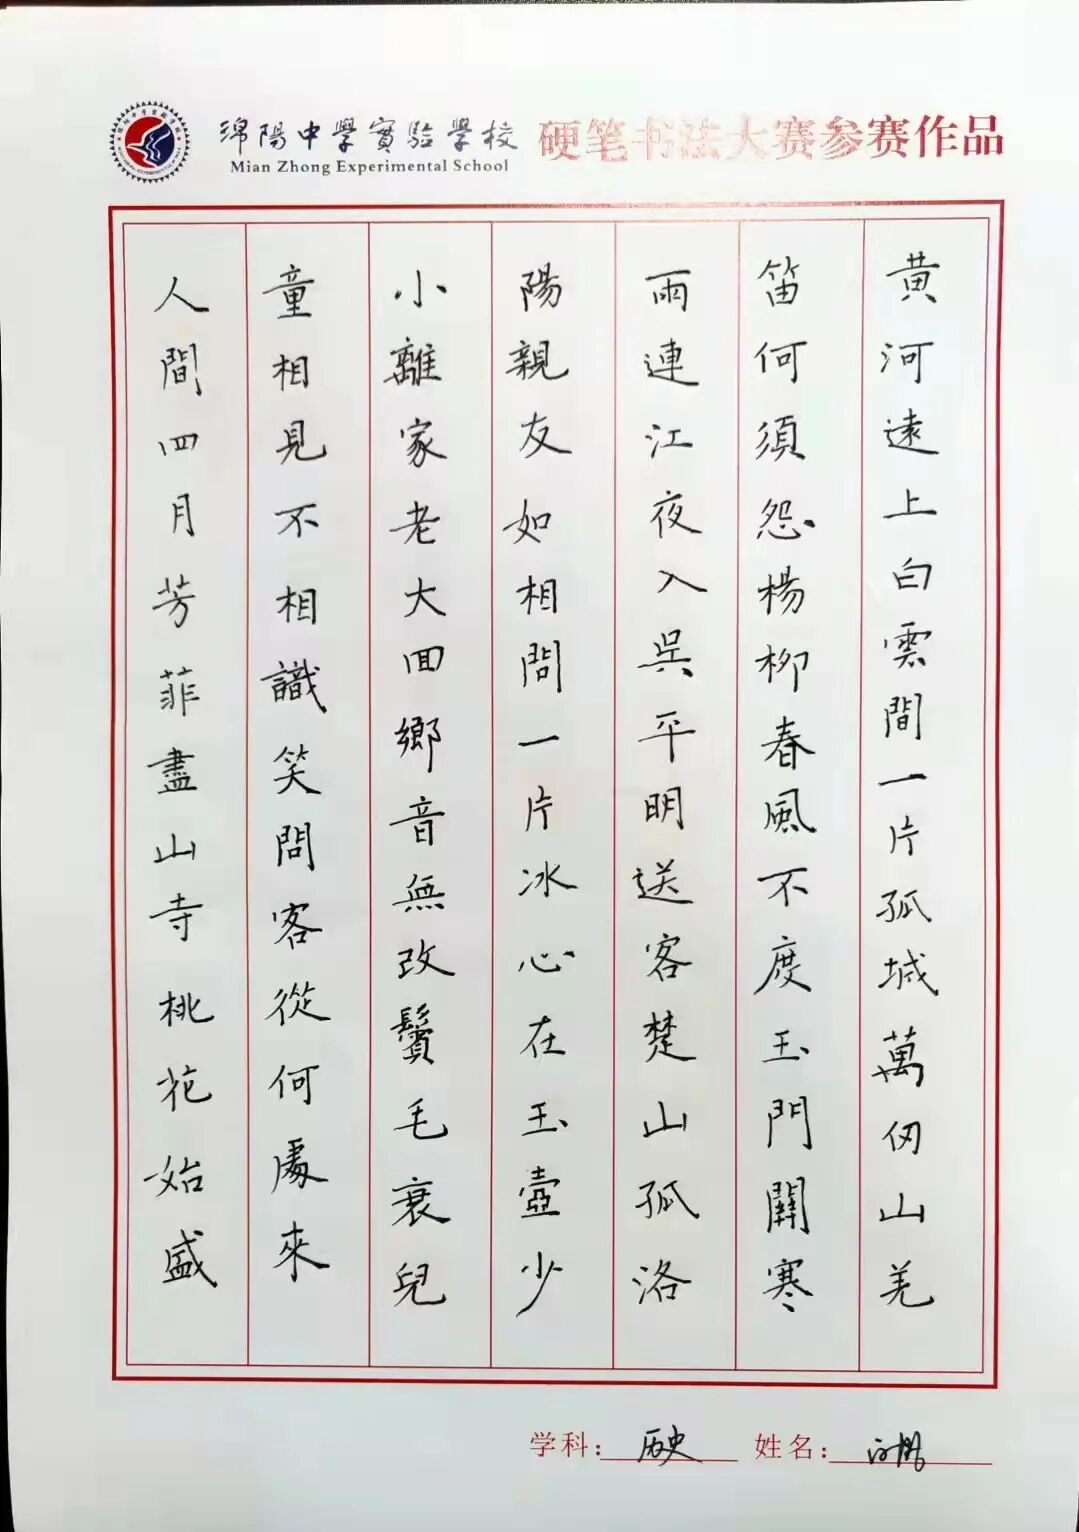 绵陽中學實驗學校
Mian Zhong Experimental School
硬笔书法大赛参赛作品
黄河遠上白雲間一片孤城萬仞山羌
笛何須怨楊柳春風不度玉門關寒
雨連江夜入吳平明送客楚山孤洛
陽親友如相問一片冰心在玉壺少
小離家老大回鄉音無改鬢毛衰兒
童相見不相識笑問客從何處來
人間四月芳菲盡山寺桃花始盛
学科：历史
姓名：